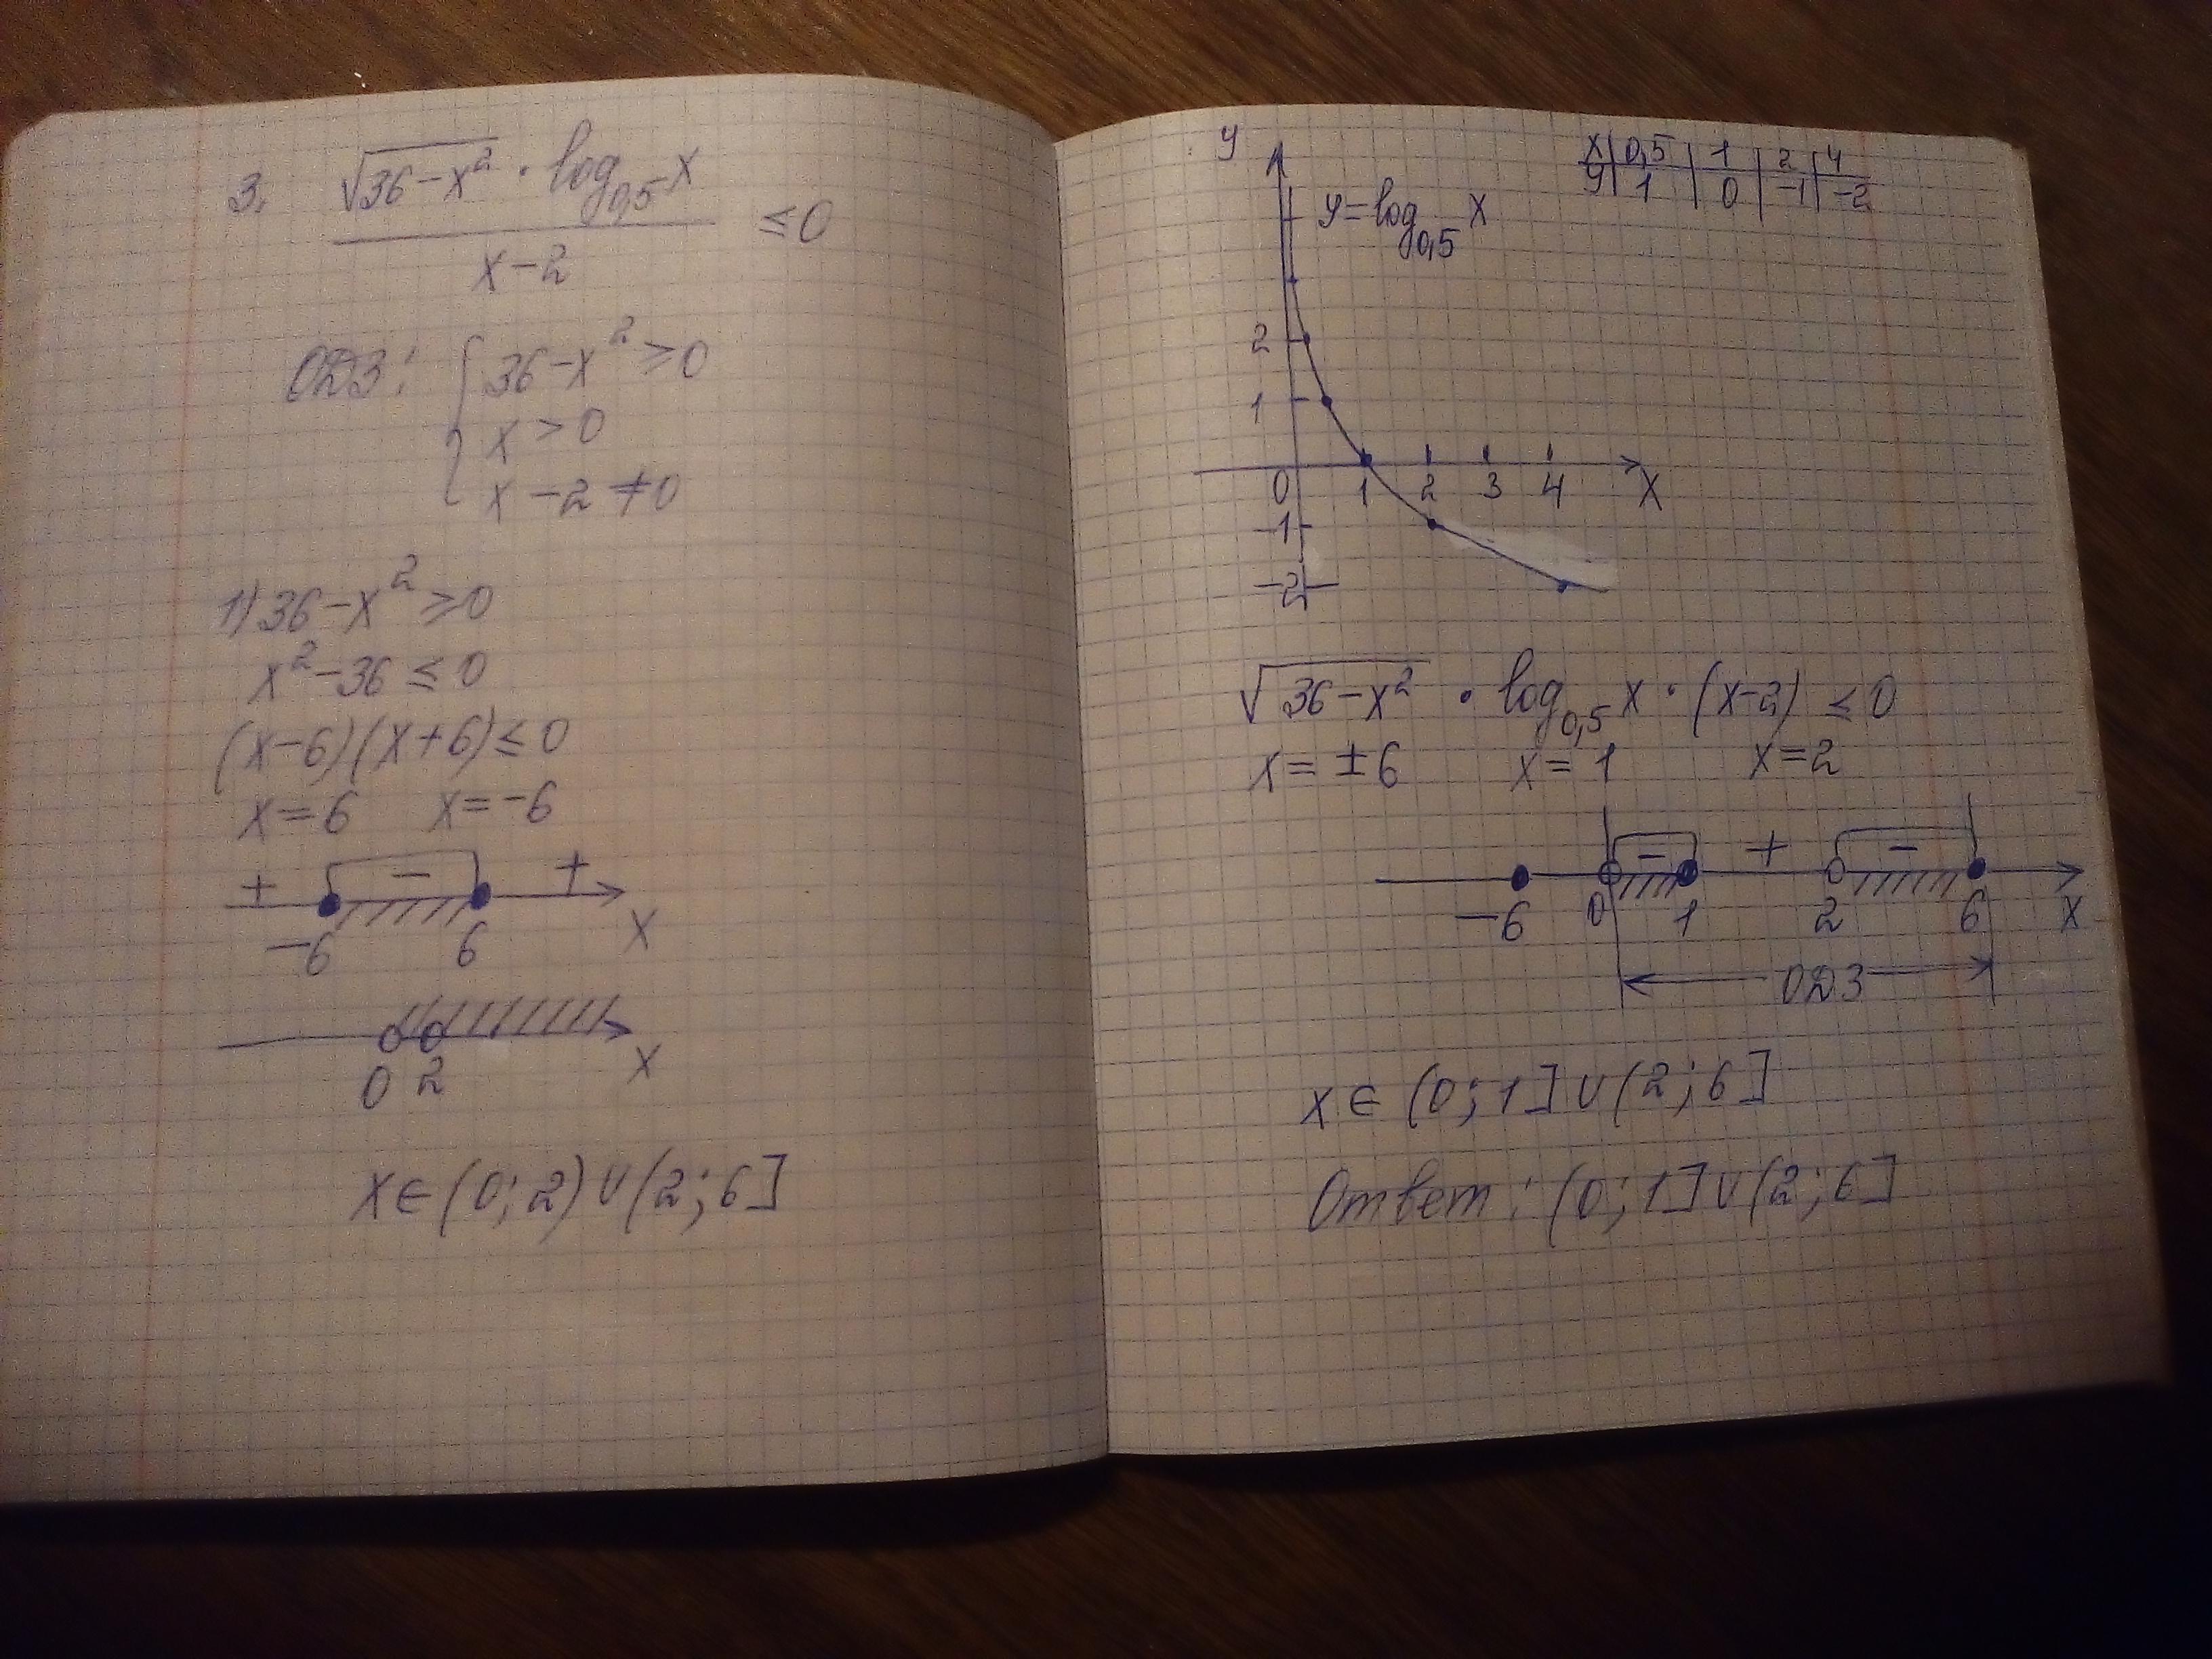 3. √36-x² · log₀,₅x
x-2
≤0
ОДЗ: { 36-x² ≥0
x >0
x-2≠0
1) 36-x² ≥0
x²-36 ≤0
(x-6)(x+6)≤0
x=6 x=-6
+ - +
-6 6 x
0 2 x
x∈(0;2)∪(2;6]
y
x | 0,5 | 1 | 2 | 4
y | 1 | 0 | -1 | -2
y=log₀,₅x
2
1
0 1 2 3 4 x
-1
-2
√36-x² · log₀,₅x · (x-2) ≤0
x=±6 x=1 x=2
- + -
-6 0 1 2 6 x
ОДЗ
x∈(0;1]∪(2;6]
Ответ: (0;1]∪(2;6]